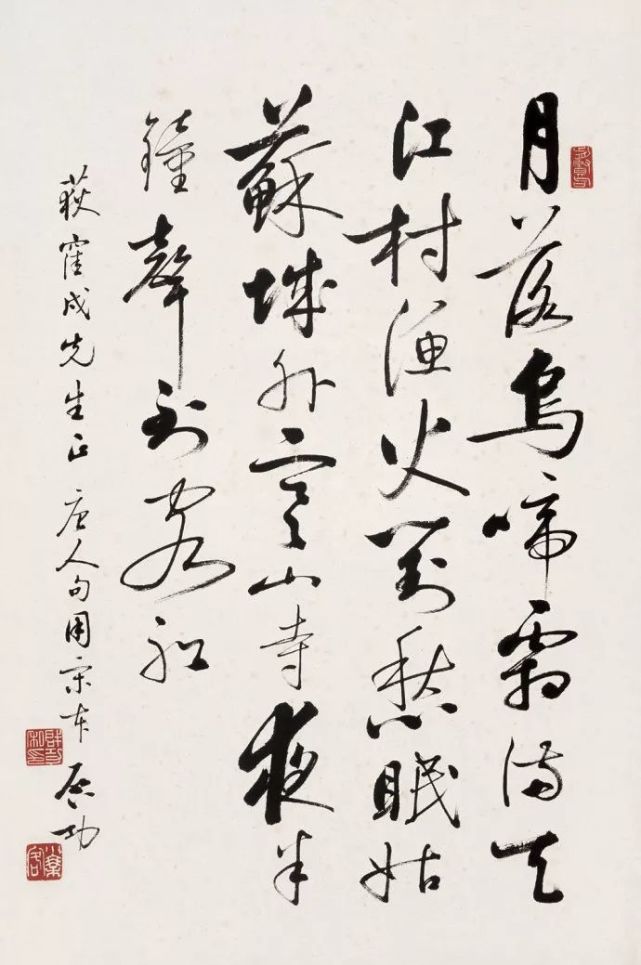 月落烏啼霜满天
江村渔火對愁眠姑
蘇城外寒山寺夜半
鐘聲到客船
荻窪成先生正 唐人句用宋本 启功